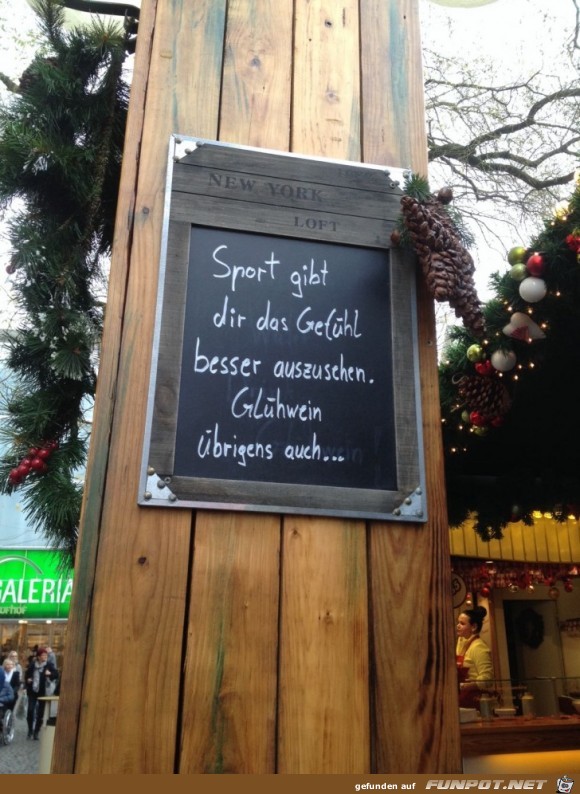 NEW YORK
LOFT
Sport gibt
dir das Gefühl
besser auszusehen.
Glühwein
übrigens auch...
GALERIA
gefunden auf FUNPOT.NET